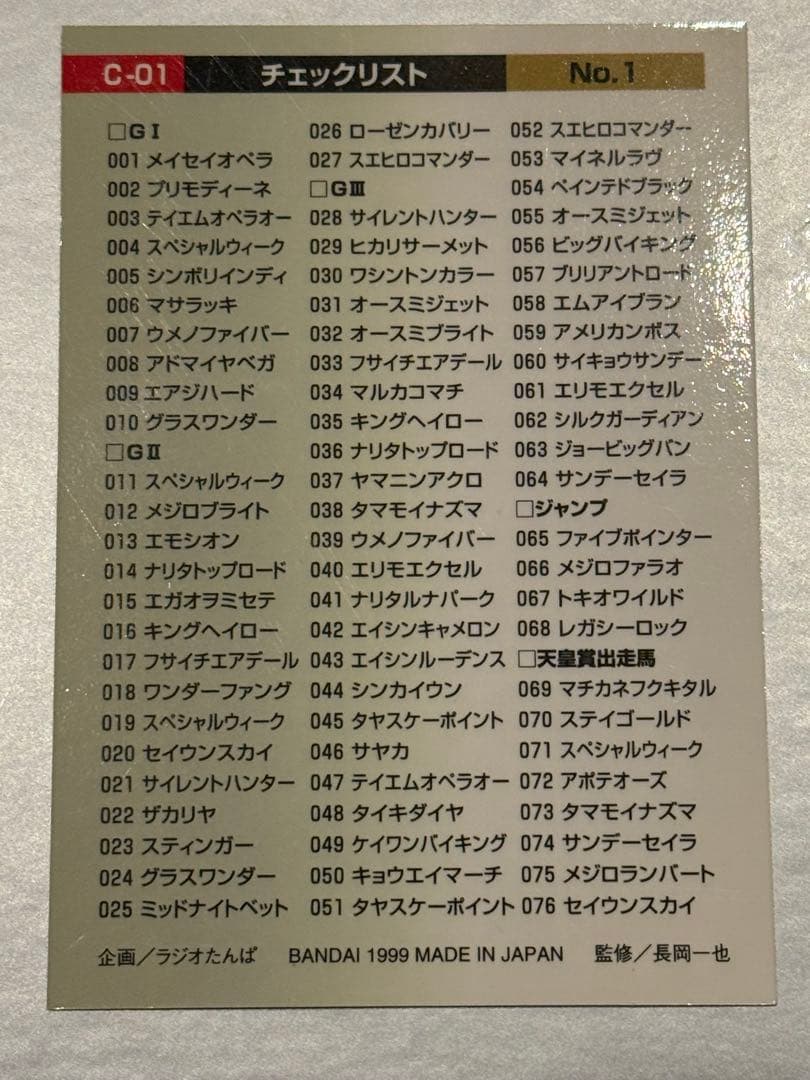 C-01 チェックリスト No.1
□GⅠ
001 メイセイオペラ
002 プリモディーネ
003 テイエムオペラオー
004 スペシャルウィーク
005 シンボリインディ
006 マサラッキ
007 ウメノファイバー
008 アドマイヤベガ
009 エアジハード
010 グラスワンダー
□GⅡ
011 スペシャルウィーク
012 メジロブライト
013 エモシオン
014 ナリタトップロード
015 エガオヲミセテ
016 キングヘイロー
017 フサイチエアデール
018 ワンダーファング
019 スペシャルウィーク
020 セイウンスカイ
021 サイレントハンター
022 ザカリヤ
023 スティンガー
024 グラスワンダー
025 ミッドナイトベット
026 ローゼンカバリー
027 スエヒロコマンダー
□GⅢ
028 サイレントハンター
029 ヒカリサーメット
030 ワシントンカラー
031 オースミジェット
032 オースミブライト
033 フサイチエアデール
034 マルカコマチ
035 キングヘイロー
036 ナリタトップロード
037 ヤマニンアクロ
038 タマモイナズマ
039 ウメノファイバー
040 エリモエクセル
041 ナリタルナパーク
042 エイシンキャメロン
043 エイシンルーデンス
044 シンカイウン
045 タヤスケーポイント
046 サヤカ
047 テイエムオペラオー
048 タイキダイヤ
049 ケイワンバイキング
050 キョウエイマーチ
051 タヤスケーポイント
052 スエヒロコマンダー
053 マイネルラヴ
054 ペインテドブラック
055 オースミジェット
056 ビッグバイキング
057 ブリリアントロード
058 エムアイブラン
059 アメリカンボス
060 サイキョウサンデー
061 エリモエクセル
062 シルクガーディアン
063 ジョービッグバン
064 サンデーセイラ
□ジャンプ
065 ファイブポインター
066 メジロファラオ
067 トキオワイルド
068 レガシーロック
□天皇賞出走馬
069 マチカネフクキタル
070 ステイゴールド
071 スペシャルウィーク
072 アポテオーズ
073 タマモイナズマ
074 サンデーセイラ
075 メジロランバート
076 セイウンスカイ
企画／ラジオたんぱ BANDAI 1999 MADE IN JAPAN 監修／長岡一也